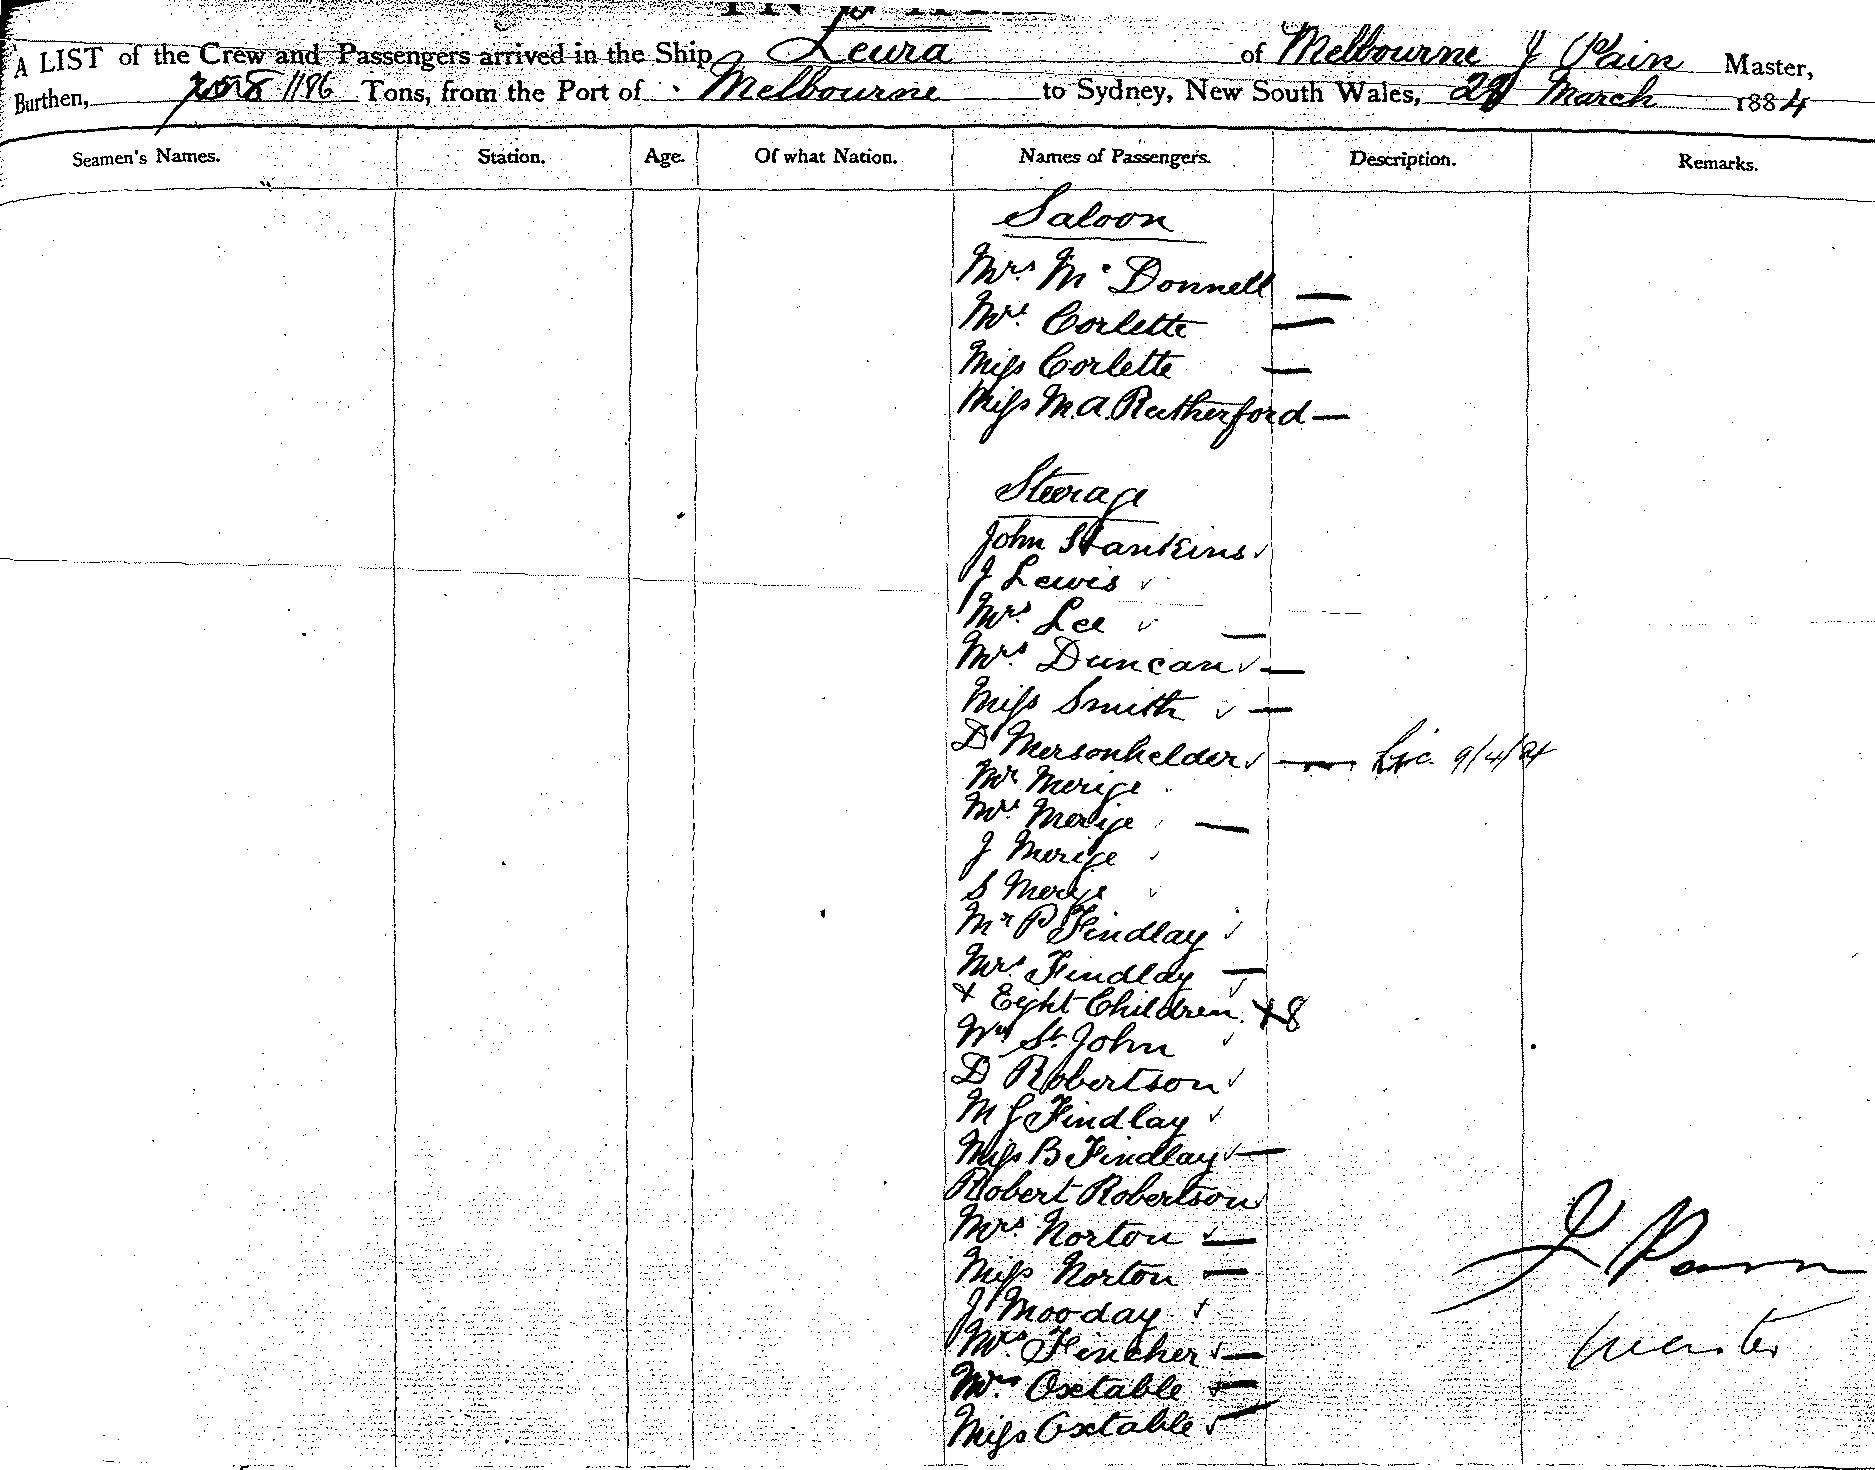 A LIST of the Crew and Passengers arrived in the Ship Leura of Melbourne J Pain Master,
Burthen, 1186 Tons, from the Port of Melbourne to Sydney, New South Wales, March 1884
Seamen's Names. Station. Age. Of what Nation. Names of Passengers. Description. Remarks.
Saloon
Mrs. Mc Donnell —
Mrs. Corlette —
Miss Corlette —
Miss M. A. Rutherford —
Steerage
John Hankins ✓
J Lewis ✓
Mrs. Lee ✓ —
Mrs. Duncan ✓ —
Miss Smith ✓ —
D Mersonhelder ✓ — 9/4/84
Mr Merije
Mrs. Merije —
J Merije ✓
S Merije ✓
Mr P Findlay ✓
Mrs. Findlay — ✓
+ Eight Children. +8
Wm St. John ✓
D Robertson ✓
M J Findlay ✓
Miss B Findlay ✓ —
Robert Robertson ✓
Mrs. Norton ✓ —
Miss Norton —
J Mooday ✓
Mrs. Fincher ✓ —
Mrs. Oxtable ✓ —
Miss Oxtable ✓ —
J Pain
Master